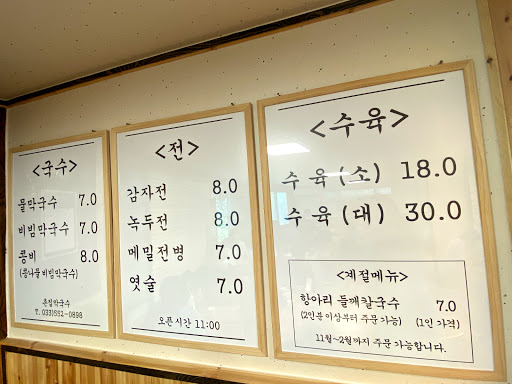 <국수>
물막국수 7.0
비빔막국수 7.0
콩비 8.0
(콩나물 비빔막국수)
큰집막국수
T. 033)552-0898
<전>
감자전 8.0
녹두전 8.0
메밀전병 7.0
엿술 7.0
오픈시간 11:00
<수육>
수육(소) 18.0
수육(대) 30.0
<계절메뉴>
항아리 들깨칼국수 7.0
(2인분이상부터 주문 가능) (1인 가격)
11월~2월까지 주문 가능합니다.